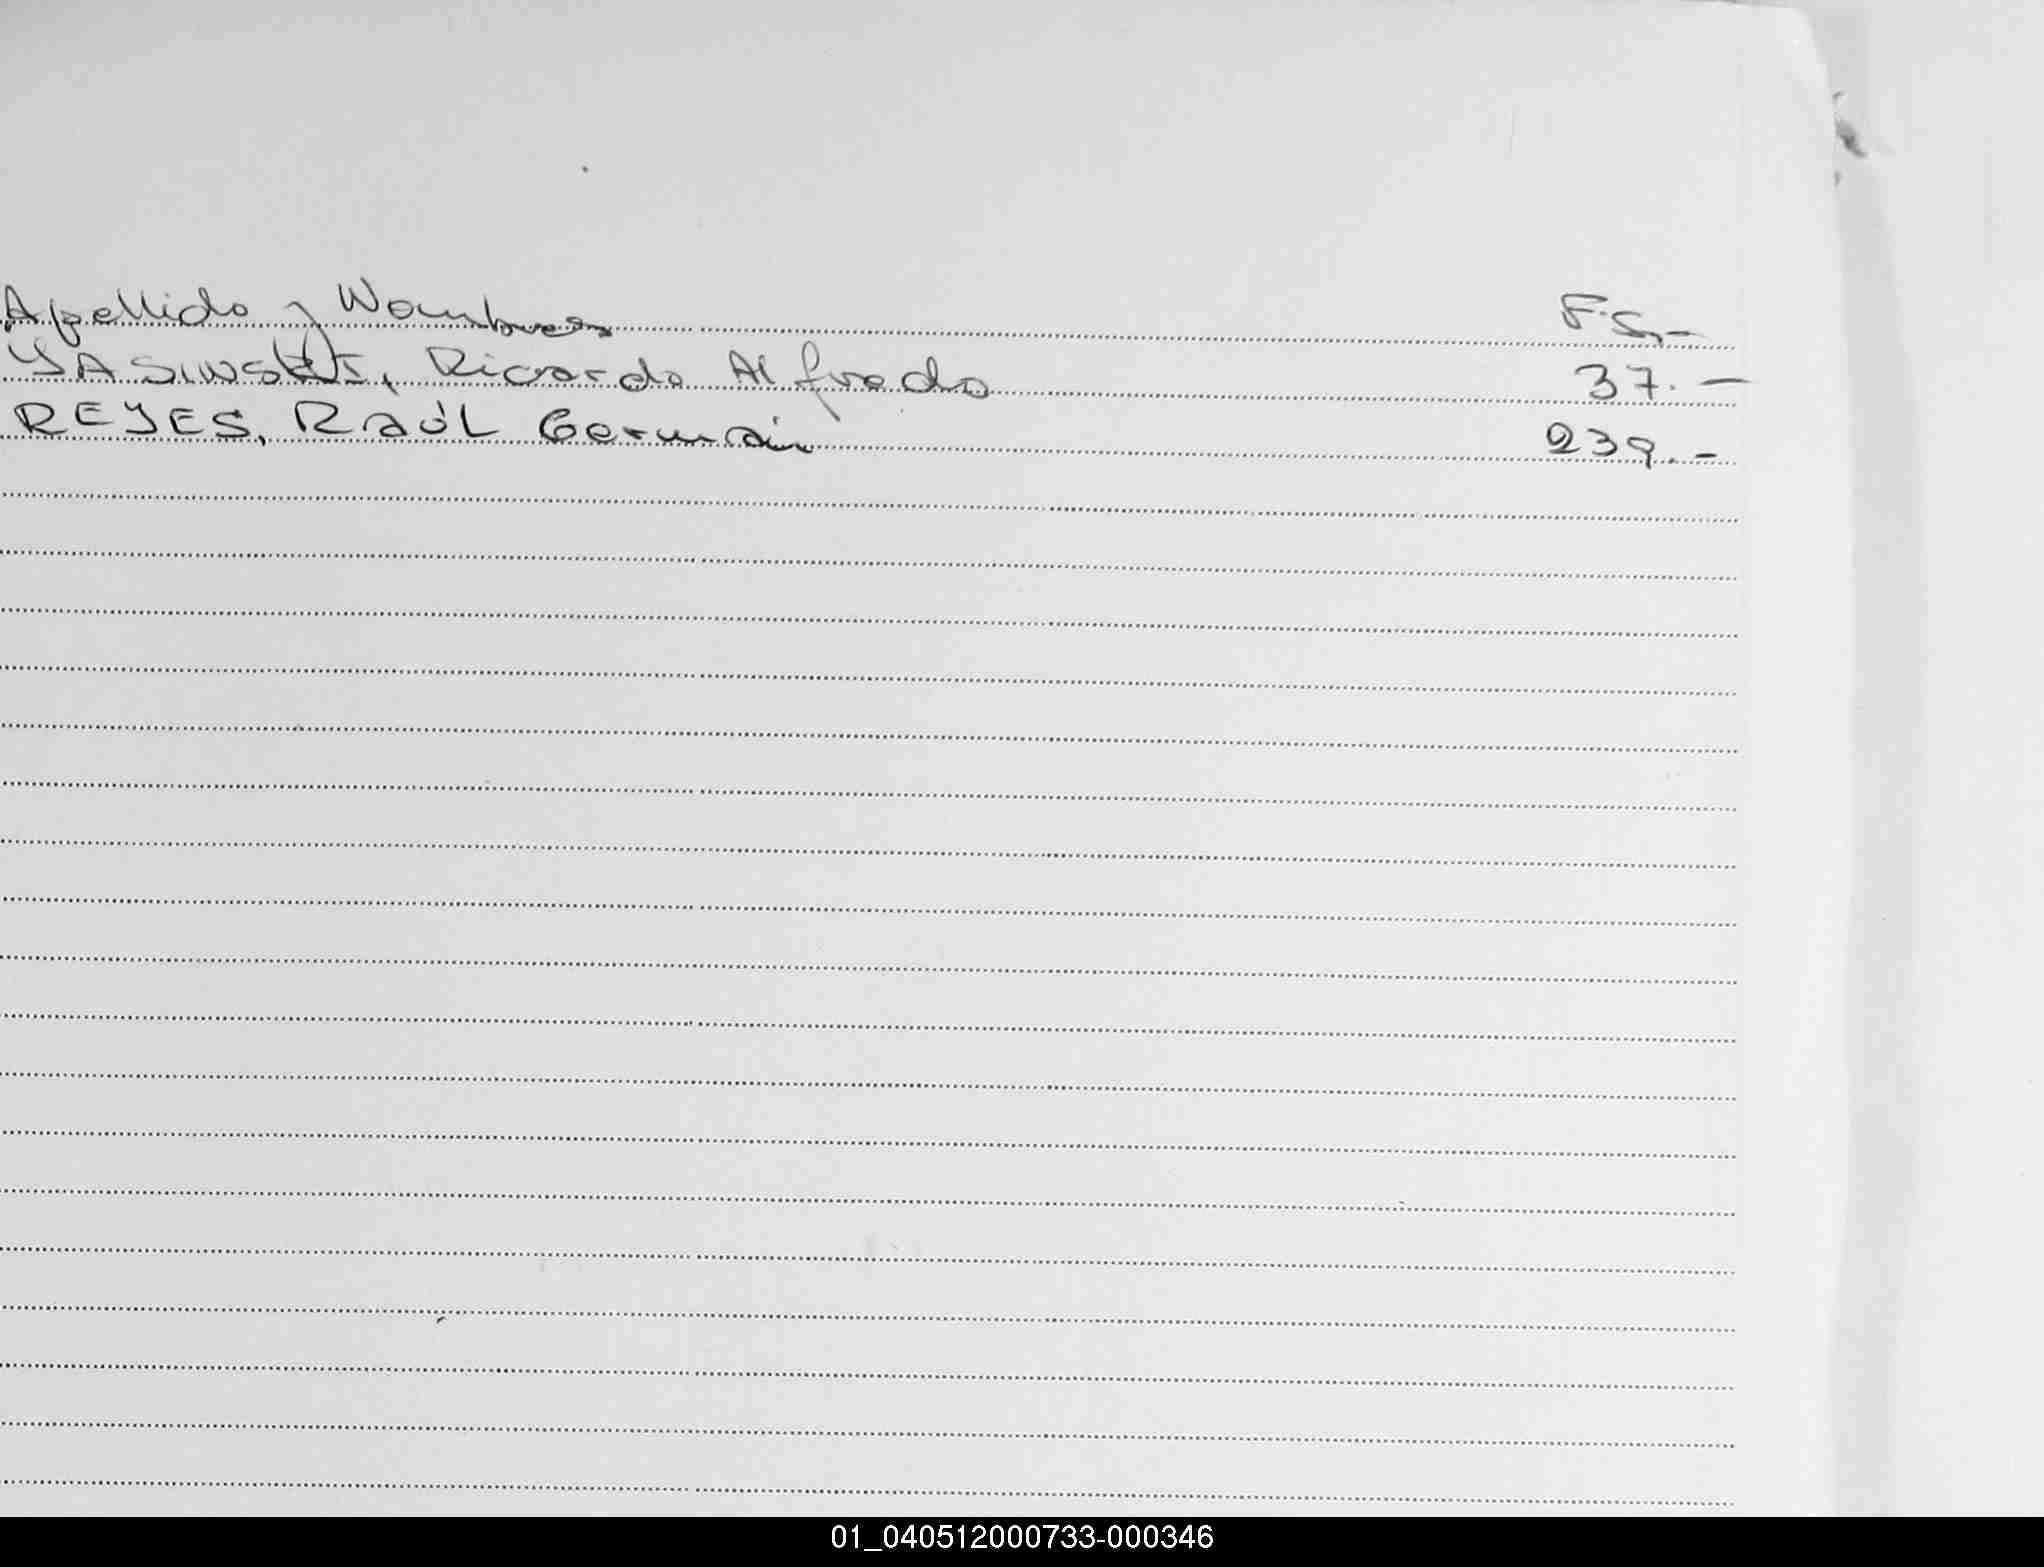 Apellido y Nombres F.S.-
YASINSKI, Ricardo Alfredo 37.-
REYES, Raúl Germain 239.-
01_040512000733-000346